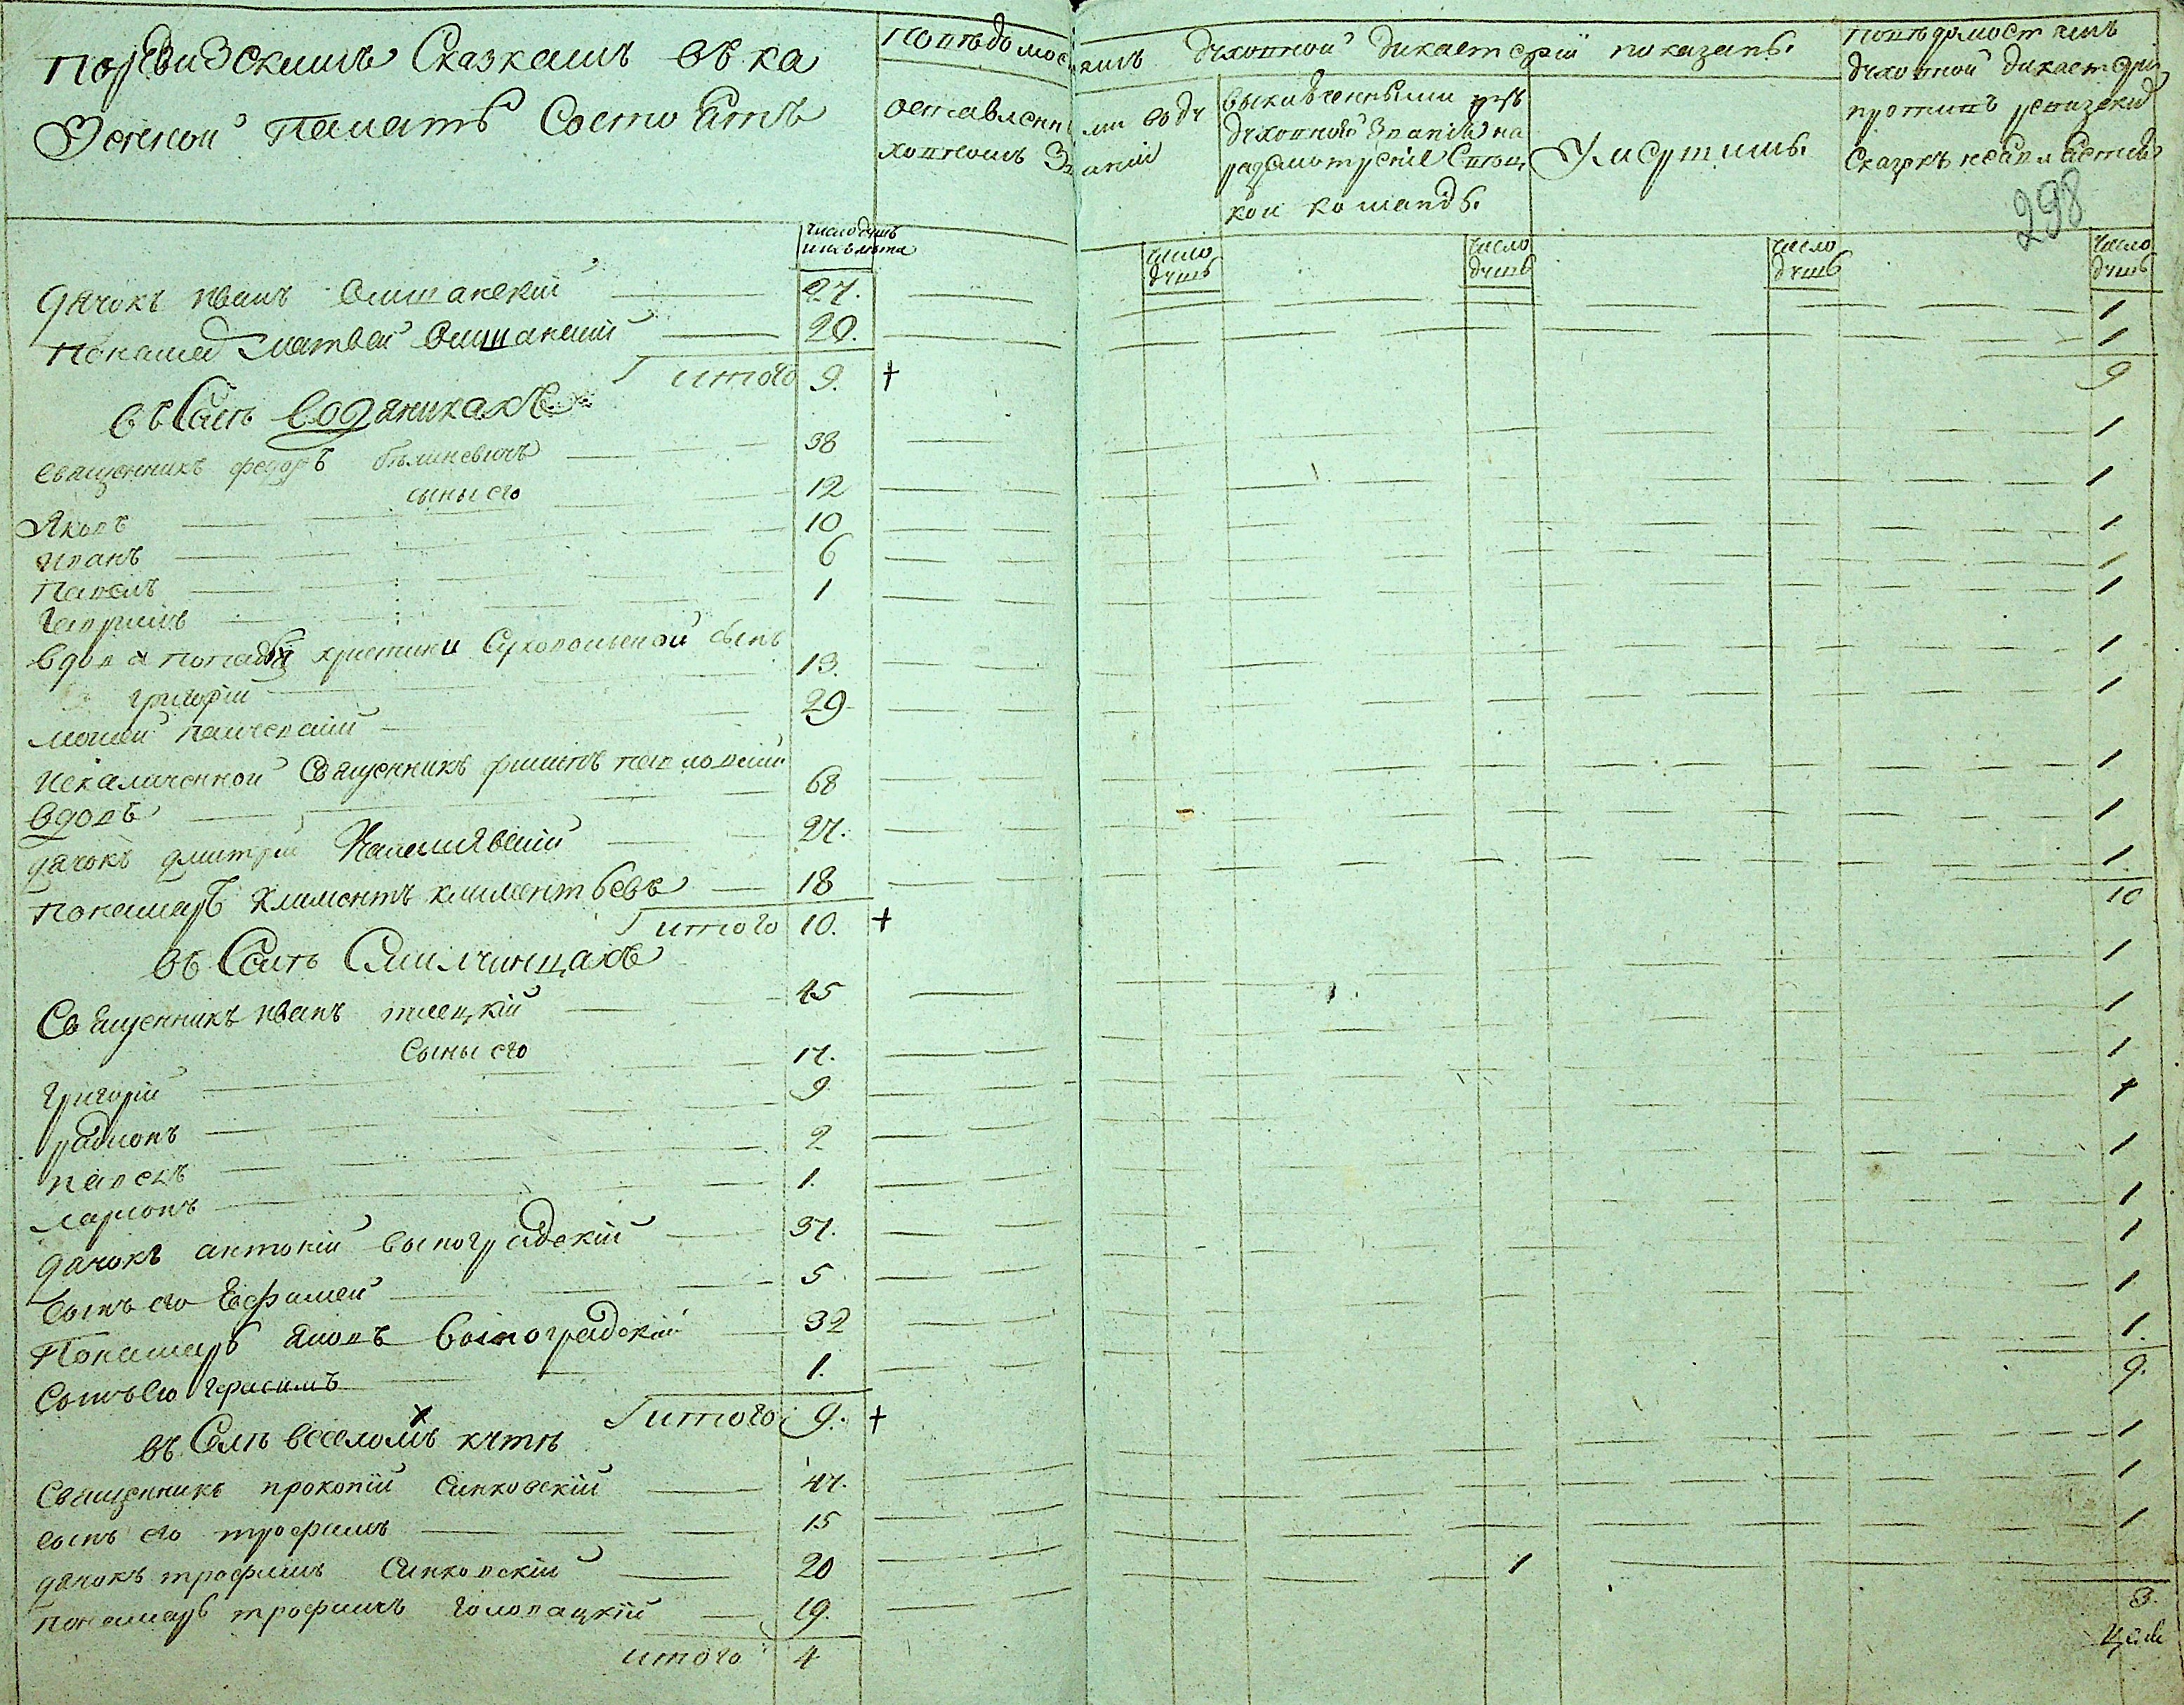 По ревизскимъ Сказкамъ въ ка
зенной палатѣ Состоитъ
По вѣдомостямъ духовной дикастерїи показанъ.
оставленными въ духовномъ Званїи
выключенными изъ духовнаго Званїя на разсмотренїе Свѣцкой команды.
Умершимъ.
По вѣдомостямъ духовной дикастерїи противъ ревизскихъ Сказокъ не
298
число душъ и ихъ лѣта
число душъ
число душъ
число душъ
число душъ
дячокъ иванъ Олшанскїй 27. 1
Понамарь матвей Олшанскїй 20. 1
итого 9. + 9
въ Селѣ Водяникахъ
Священникъ федоръ 38 1
сыны его
Яковъ 12 1
иванъ 10 1
Павелъ 6 1
Гавриилъ 1 1
вдовы попадьи христины Сухопольской сынъ
григорїй 13. 1
29 1
Искаличенной Священникъ филипъ павловскїй
вдовъ 68 1
дячокъ дмитрїй 27. 1
Понамарь климентъ климентьевъ 18 1
итого 10. + 10
въ Селѣ Смилчинцахъ
Священникъ иванъ 45 1
Сыны его
григорїй 17. 1
радионъ 9 1
павелъ 2 1
ларионъ 1. 1
дячокъ антонїй виноградскїй 37. 1
сынъ его Ефимей 5 1
Понамарь яковъ виноградскїй 32 1
Сынъ его герасимъ 1. 1.
итого 9. + 9.
въ Селѣ веселомъ кутѣ
Священникъ прокопїй Синковскїй 47. 1
сынъ его трофимъ 15 1
дячокъ трофимъ Синковскїй 20 1
понамарь трофимъ головацкїй 19. 1
итого 4 3.